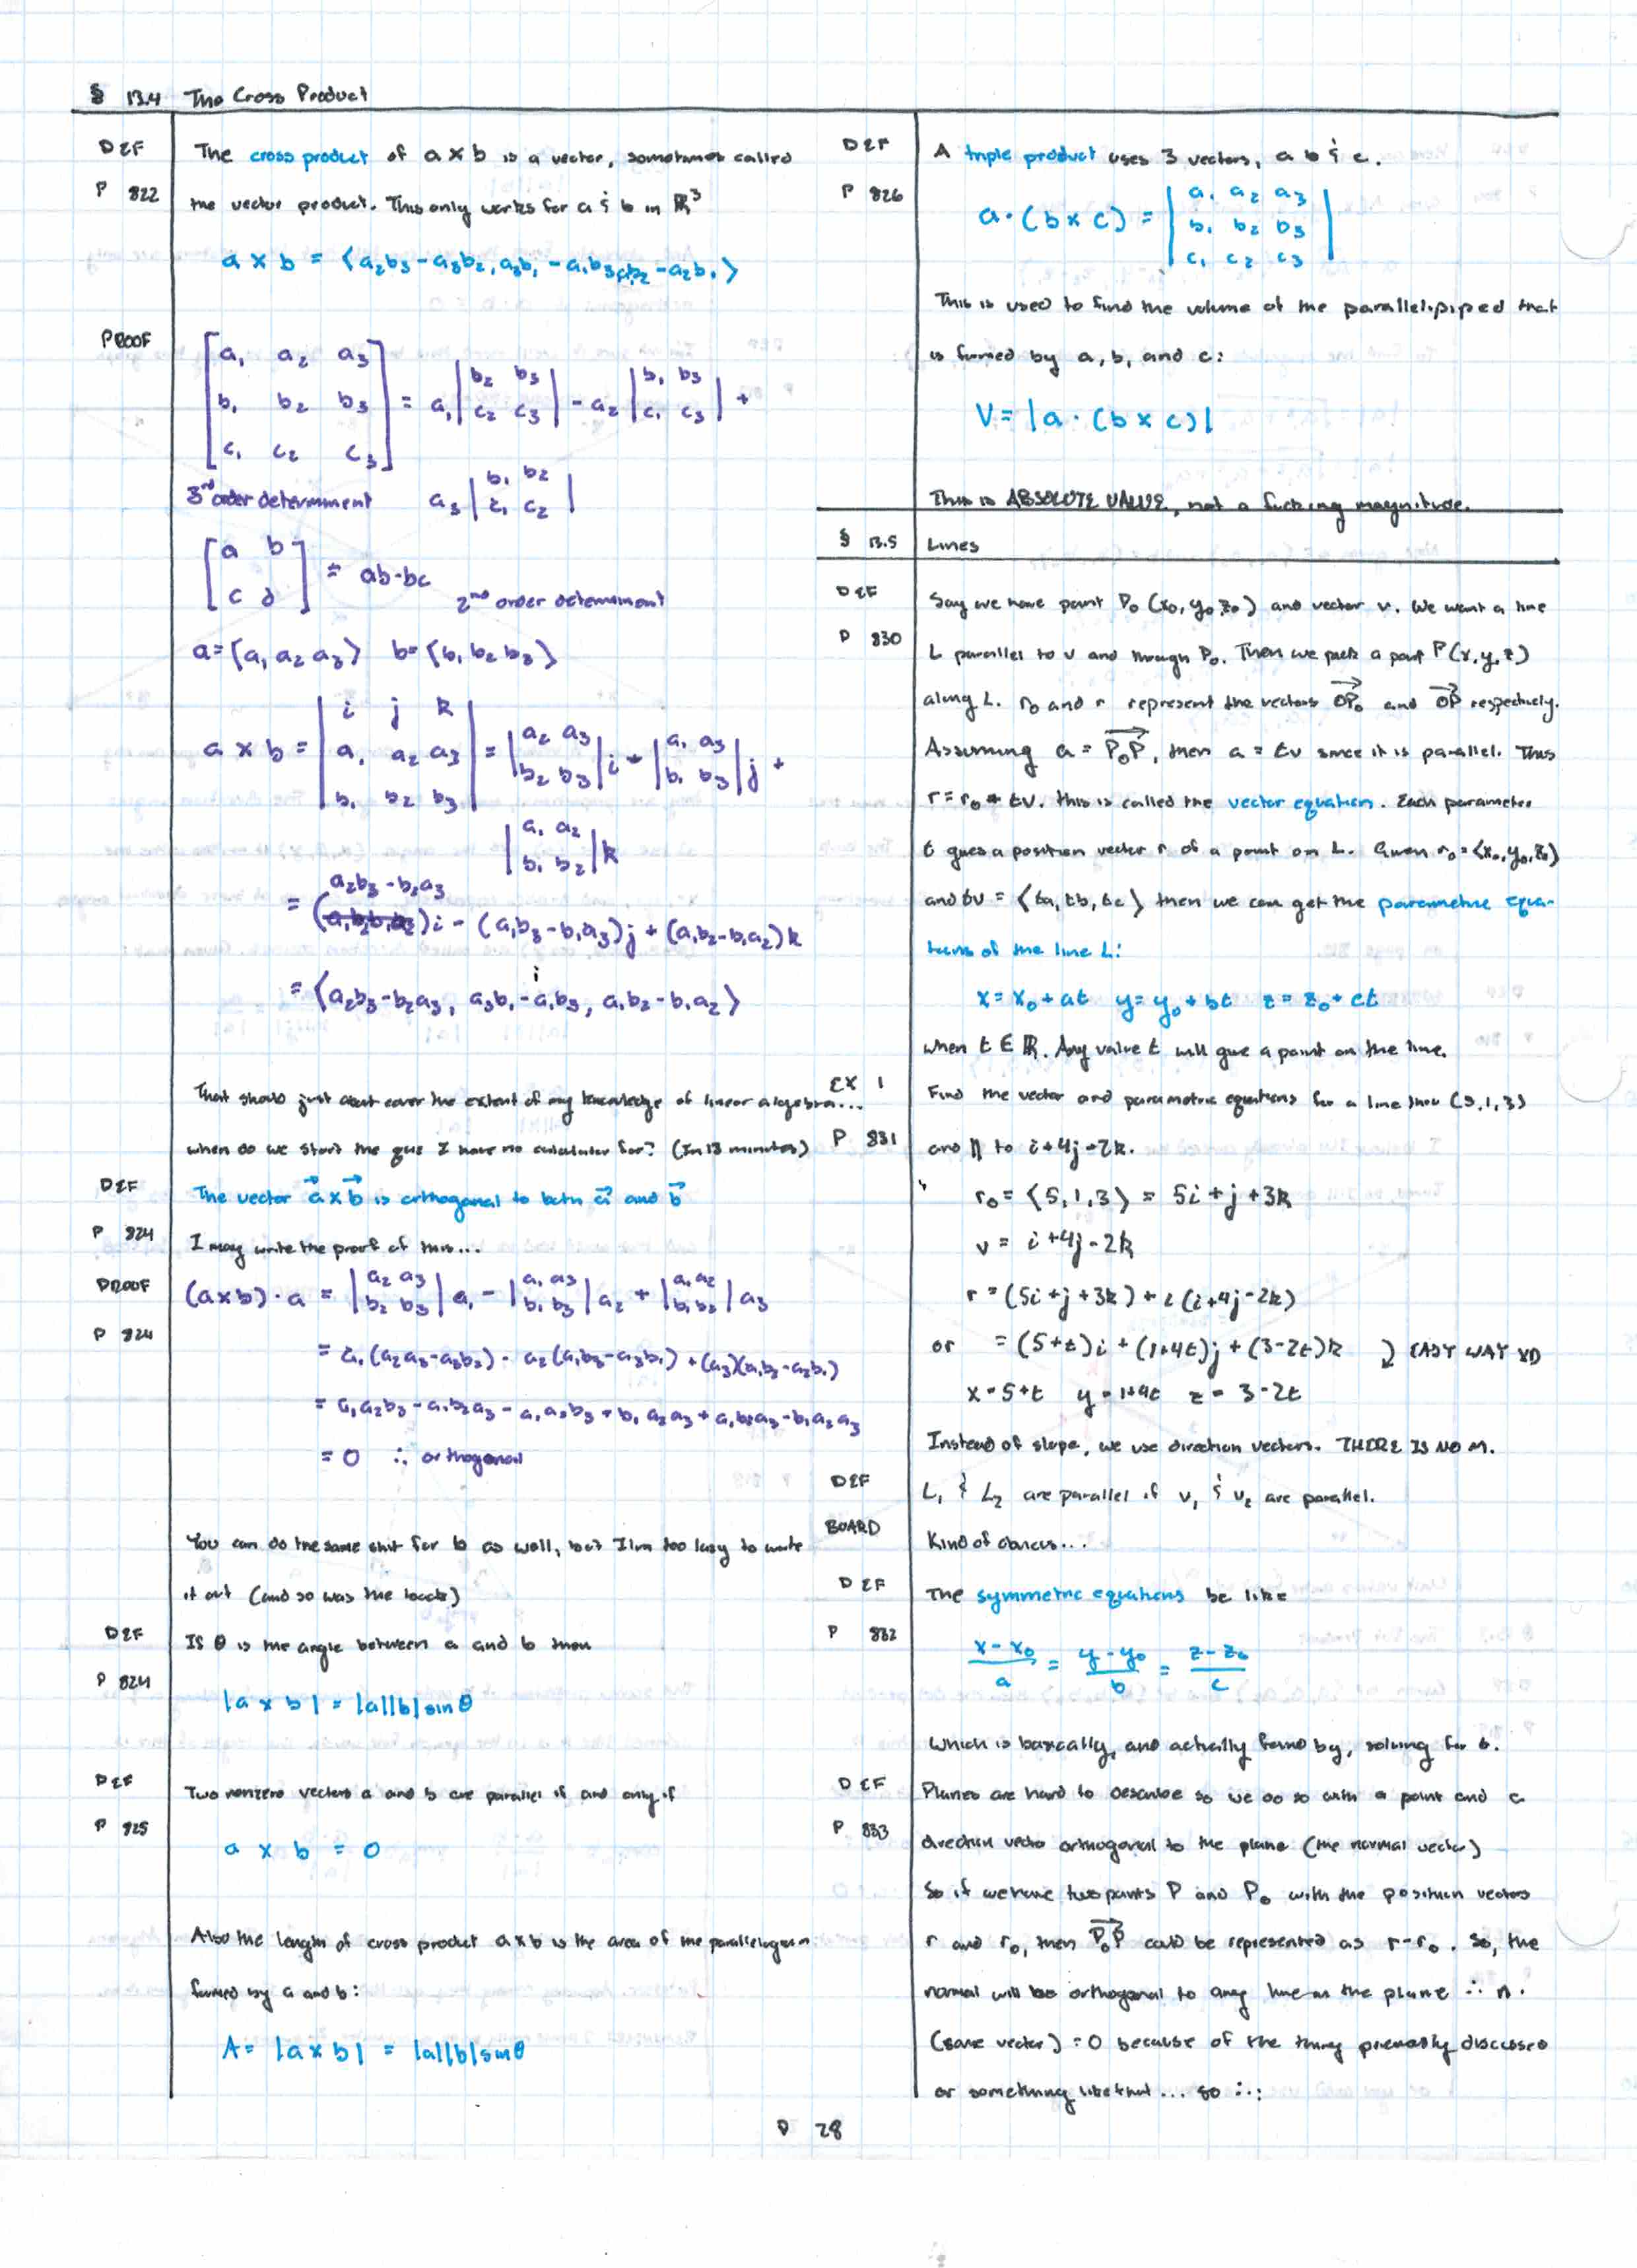 § 13.4 The Cross Product
DEF The cross product of a x b is a vector, sometimes called
P 822 the vector product. This only works for a & b in ℝ³
a x b = ⟨a₂b₃-a₃b₂, a₃b₁-a₁b₃, a₁b₂-a₂b₁⟩
PROOF
[a₁ a₂ a₃
b₁ b₂ b₃
c₁ c₂ c₃] = a₁|b₂ b₃ c₂ c₃| - a₂|b₁ b₃ c₁ c₃| +
3rd order determinant a₃|b₁ b₂ c₁ c₂|
[a b
c d] = ab-bc 2nd order determinant
a=⟨a₁ a₂ a₃⟩ b=⟨b₁ b₂ b₃⟩
a x b = |i j k
a₁ a₂ a₃
b₁ b₂ b₃| = |a₂ a₃ b₂ b₃|i - |a₁ a₃ b₁ b₃|j +
|a₁ a₂ b₁ b₂|k
a₂b₃-b₂a₃
= ( )i - (a₁b₃-b₁a₃)j + (a₁b₂-b₁a₂)k
= ⟨a₂b₃-b₂a₃, a₃b₁-a₁b₃, a₁b₂-b₁a₂⟩
That should just about cover the extent of my knowledge of linear algebra...
when do we start the quiz I have no calculator for? (In 13 minutes)
DEF The vector a⃗ x b⃗ is orthogonal to both a⃗ and b⃗
P 824 I may write the proof of this...
PROOF (axb)·a = |a₂ a₃ b₂ b₃|a₁ - |a₁ a₃ b₁ b₃|a₂ + |a₁ a₂ b₁ b₂|a₃
P 824 = a₁(a₂a₃-a₃b₂) - a₂(a₁b₃-a₃b₁) + (a₃)(a₁b₂-a₂b₁)
= a₁a₂b₃-a₁b₂a₃-a₁a₂b₃+b₁a₂a₃+a₁b₂a₃-b₁a₂a₃
= 0 ∴ orthogonal
You can do the same shit for b as well, but I'm too lazy to write
it out (and so was the book)
DEF If θ is the angle between a and b then
P 824
|a x b| = |a||b|sinθ
DEF Two nonzero vectors a and b are parallel if and only if
P 825
a x b = 0
Also the length of cross product axb is the area of the parallelogram
formed by a and b:
A= |a x b| = |a||b|sinθ
DEF A triple product uses 3 vectors, a b & c.
P 826 a·(b x c) = |a₁ a₂ a₃
b₁ b₂ b₃
c₁ c₂ c₃|
This is used to find the volume of the parallelipiped that
is formed by a, b, and c:
V = |a·(b x c)|
This is ABSOLUTE VALUE, not a fucking magnitude.
§ 13.5 Lines
DEF Say we have point P₀(x₀,y₀,z₀) and vector v. We want a line
P 830 L parallel to v and through P₀. Then we pick a point P(x,y,z)
along L. r₀ and r represent the vectors OP₀ and OP respectively.
Assuming a = P₀P, then a = tv since it is parallel. Thus
r = r₀ + tv. This is called the vector equation. Each parameter
t gives a position vector r of a point on L. Given r₀=⟨x₀,y₀,z₀⟩
and tv = ⟨ta, tb, tc⟩ then we can get the parametric equa-
tions of the line L:
x = x₀+at y = y₀+bt z = z₀+ct
when t ∈ ℝ. Any value t will give a point on the line.
EX 1 Find the vector and parametric equations for a line thru (5,1,3)
P 831 and ∥ to i+4j-2k.
r₀ = ⟨5,1,3⟩ = 5i+j+3k
v = i+4j-2k
r = (5i+j+3k) + t(i+4j-2k)
or = (5+t)i + (1+4t)j + (3-2t)k EASY WAY XD
x=5+t y=1+4t z=3-2t
Instead of slope, we use direction vectors. THERE IS NO M.
DEF L₁ & L₂ are parallel if v₁ & v₂ are parallel.
BOARD Kind of obvious...
DEF The symmetric equations be like
P 832
x-x₀/a = y-y₀/b = z-z₀/c
Which is basically, and actually found by, solving for t.
DEF Planes are hard to describe so we do so with a point and a
P 833 direction vector orthogonal to the plane (the normal vector)
So if we have two points P and P₀ with the position vectors
r and r₀, then P₀P could be represented as r-r₀. So, the
normal will be orthogonal to any line on the plane ∴ n·
(some vector) = 0 because of the thing previously discussed
or something like that... so ∴:
P 28